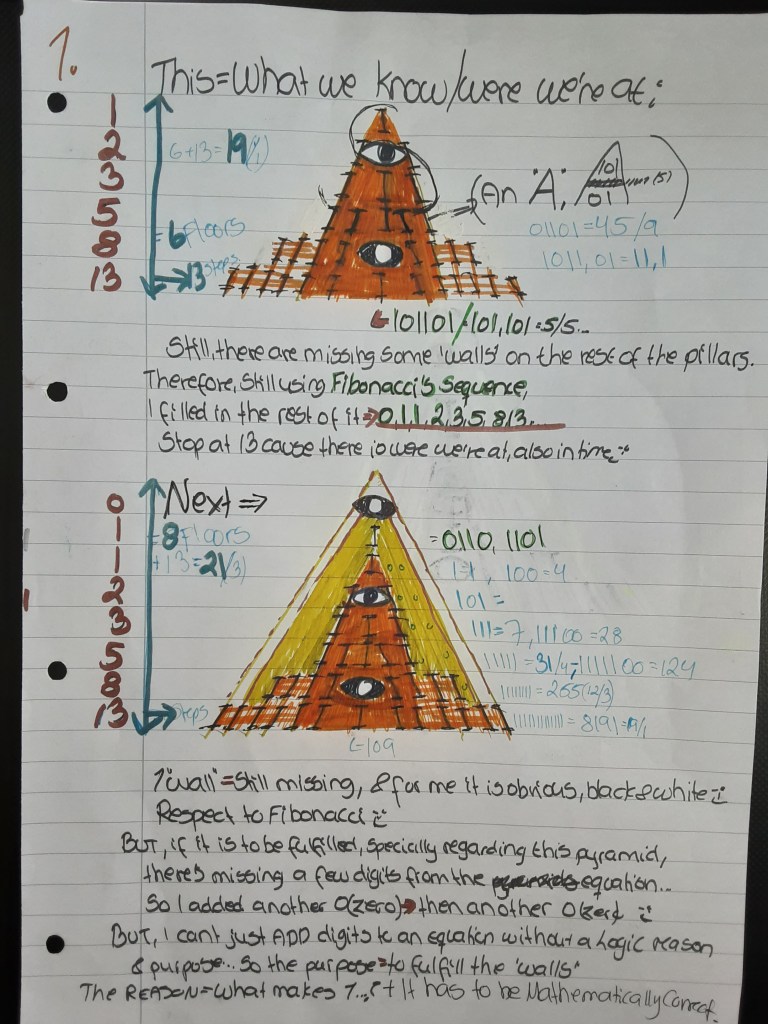 1.
This=What we know/were we're at:
1
2
3
5
8
13
6+13=19(/1)
=6 Floors
→13 steps
(An "A",
101
01
(5)
01101=45/9
1011,01=11,1
101101/101,101=5/5...
Still, there are missing some 'walls' on the rest of the pillars.
Therefore, Still using Fibonacci's Sequence,
I filled in the rest of it⇒0,1,1,2,3,5,8,13....
Stop at 13 cause there is were we're at, also in time,
Next ⇒
0
1
1
2
3
5
8
13
=8 Floors
+13=21(/3)
steps
=0110, 1101
1+1, 100=4
101=
111=7, 11100=28
11111=31/4, 1111100=124
=265(12/3)
=8191=19/1
109
1"wall"=Still missing, & for me it is obvious, black & white
Respect to Fibonacci
BUT, if it is to be fulfilled, specially regarding this pyramid,
there's missing a few digits from the equation...
So I added another 0(zero)→then another 0(zero)
BUT, I can't just ADD digits to an equation without a Logic reason
& purpose... So the purpose=to fulfill the 'walls'
The REASON=What makes 1...,? + It has to be Mathematically Correct.